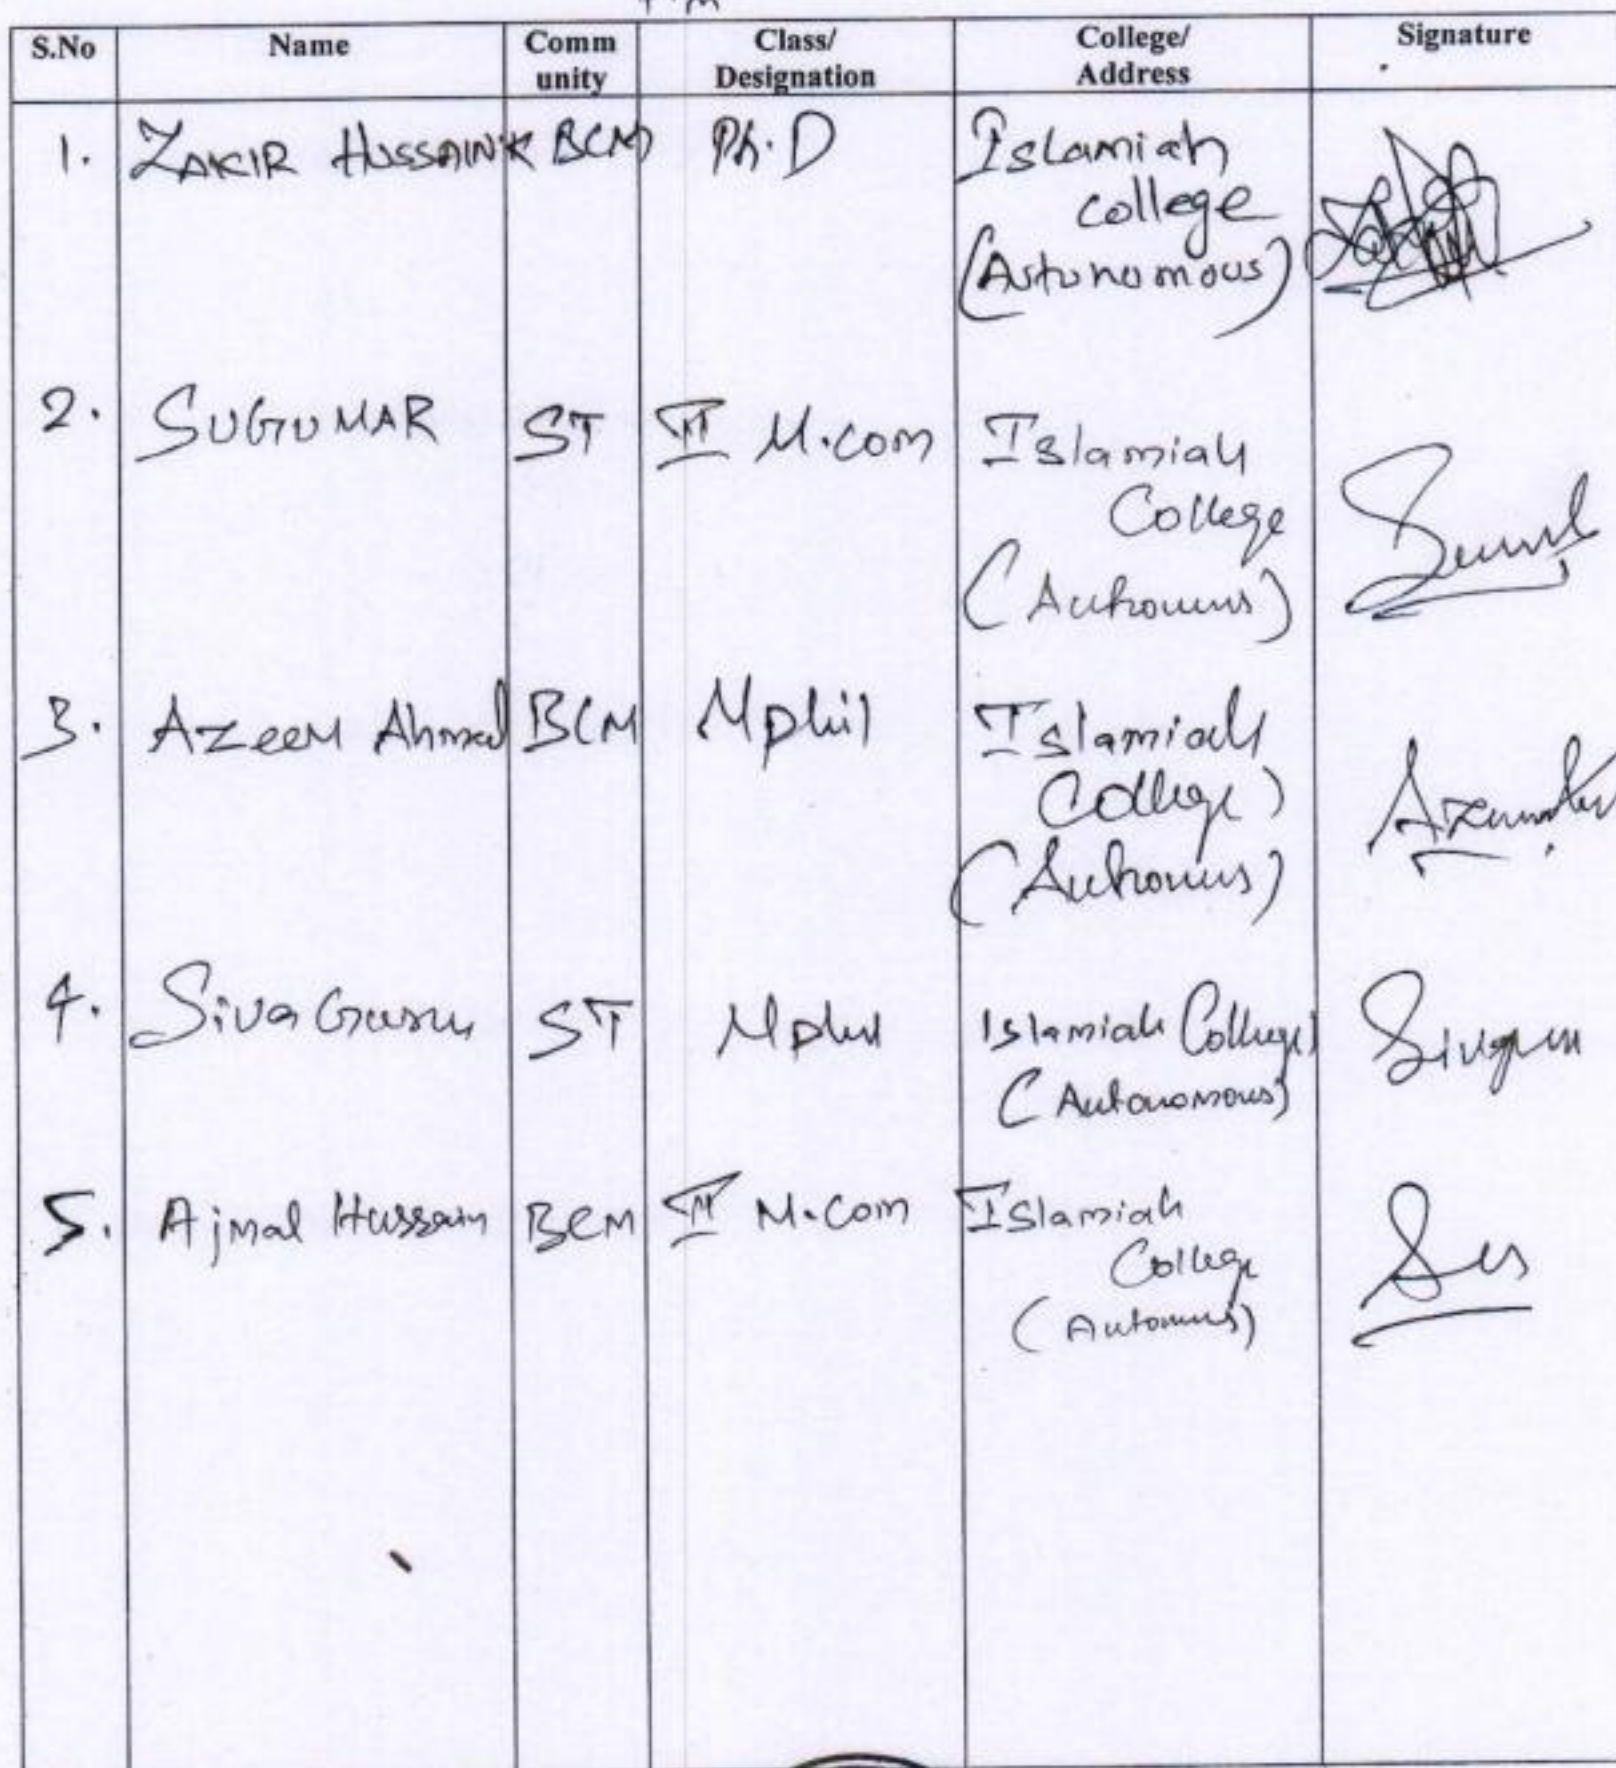 S.No Name Comm unity Class/ Designation College/ Address Signature
1. ZAKIR HUSSAIN K BCM Ph.D Islamiah
college
(Autonomous)
2. SUGUMAR ST II M.com Islamiah
College
(Autonoums)
3. Azeem Ahmed BCM Mphil Islamiah
College)
(Autonoums)
4. Siva Guru ST Mphil Islamiah College)
(Autonomous)
5. Ajmal Hussain BCM II M.Com Islamiah
College
(Autonoums)